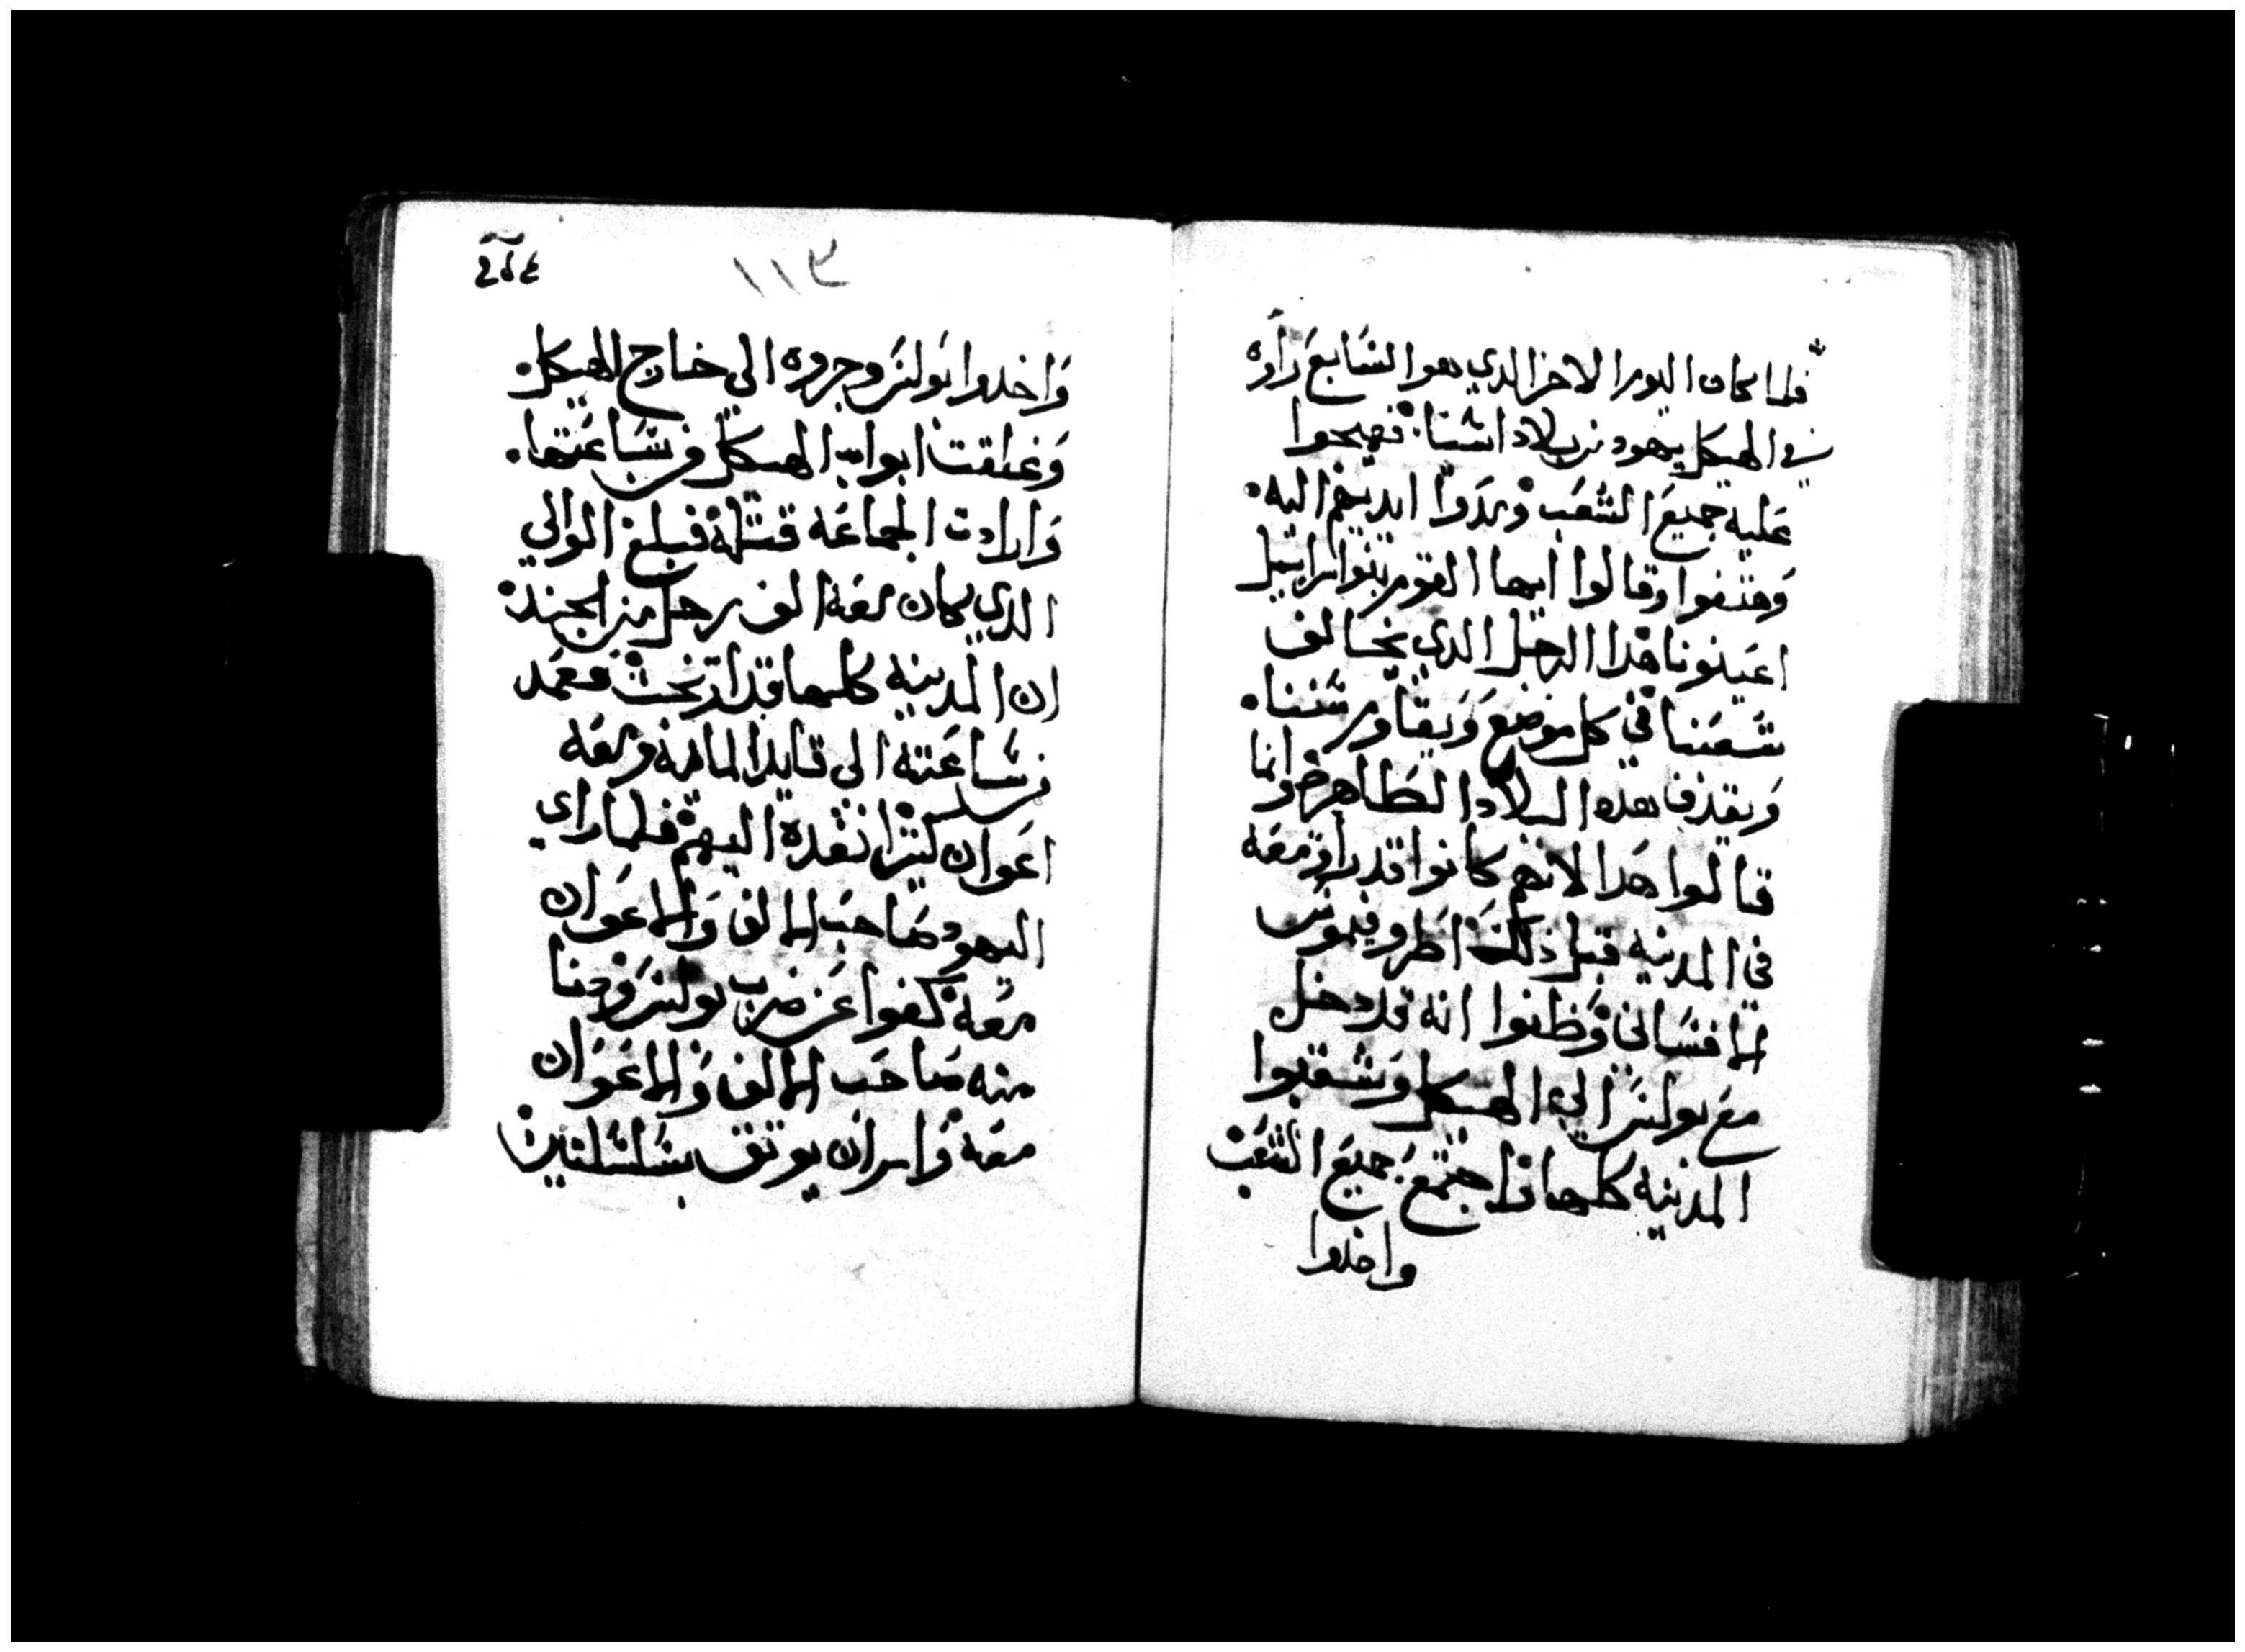 فلما كان اليوم الاخر الدي هو السابع راوه
في الهيكل يهود من بلاد اسيا. فهيجوا
عليه جميع الشعب ومدوا ايديهم اليه.
وهتفوا وقالوا ايها القوم بنوا اسراييل
اعينونا هدا الرجل الدي يخالف
شعبنا في كل موضع ويقاوم سننا.
ويقدف هده البلاد الطاهره وانما
قالوا هدا لانهم كانوا قد راو معه
في المدينه قبل ذلك اطروفيموس
الافساني وظنوا انه قد دخل
مع بولس الي الهيكل وشغبوا
المدينه كلها واجتمع جميع الشعب
واخدوا
١١٣
واخدوا بولس وجروه الى خارج الهيكل.
وغلقت ابواب الهيكل من ساعتها.
وارادت الجماعه قتله فبلغ الوالي
الدي كان معه الف رجل من الجند
ان المدينه كلها قد ارتجت فعمد
من ساعته الى قايد الماية ومعه
اعوان كتيرا نفده اليهم فلما راي
اليهود صاحب الالف والاعوان
معه كفوا عن ضرب بولس ودنا
منه صاحب الالف والاعوان
معه وامر ان يوتق بسلسلتين